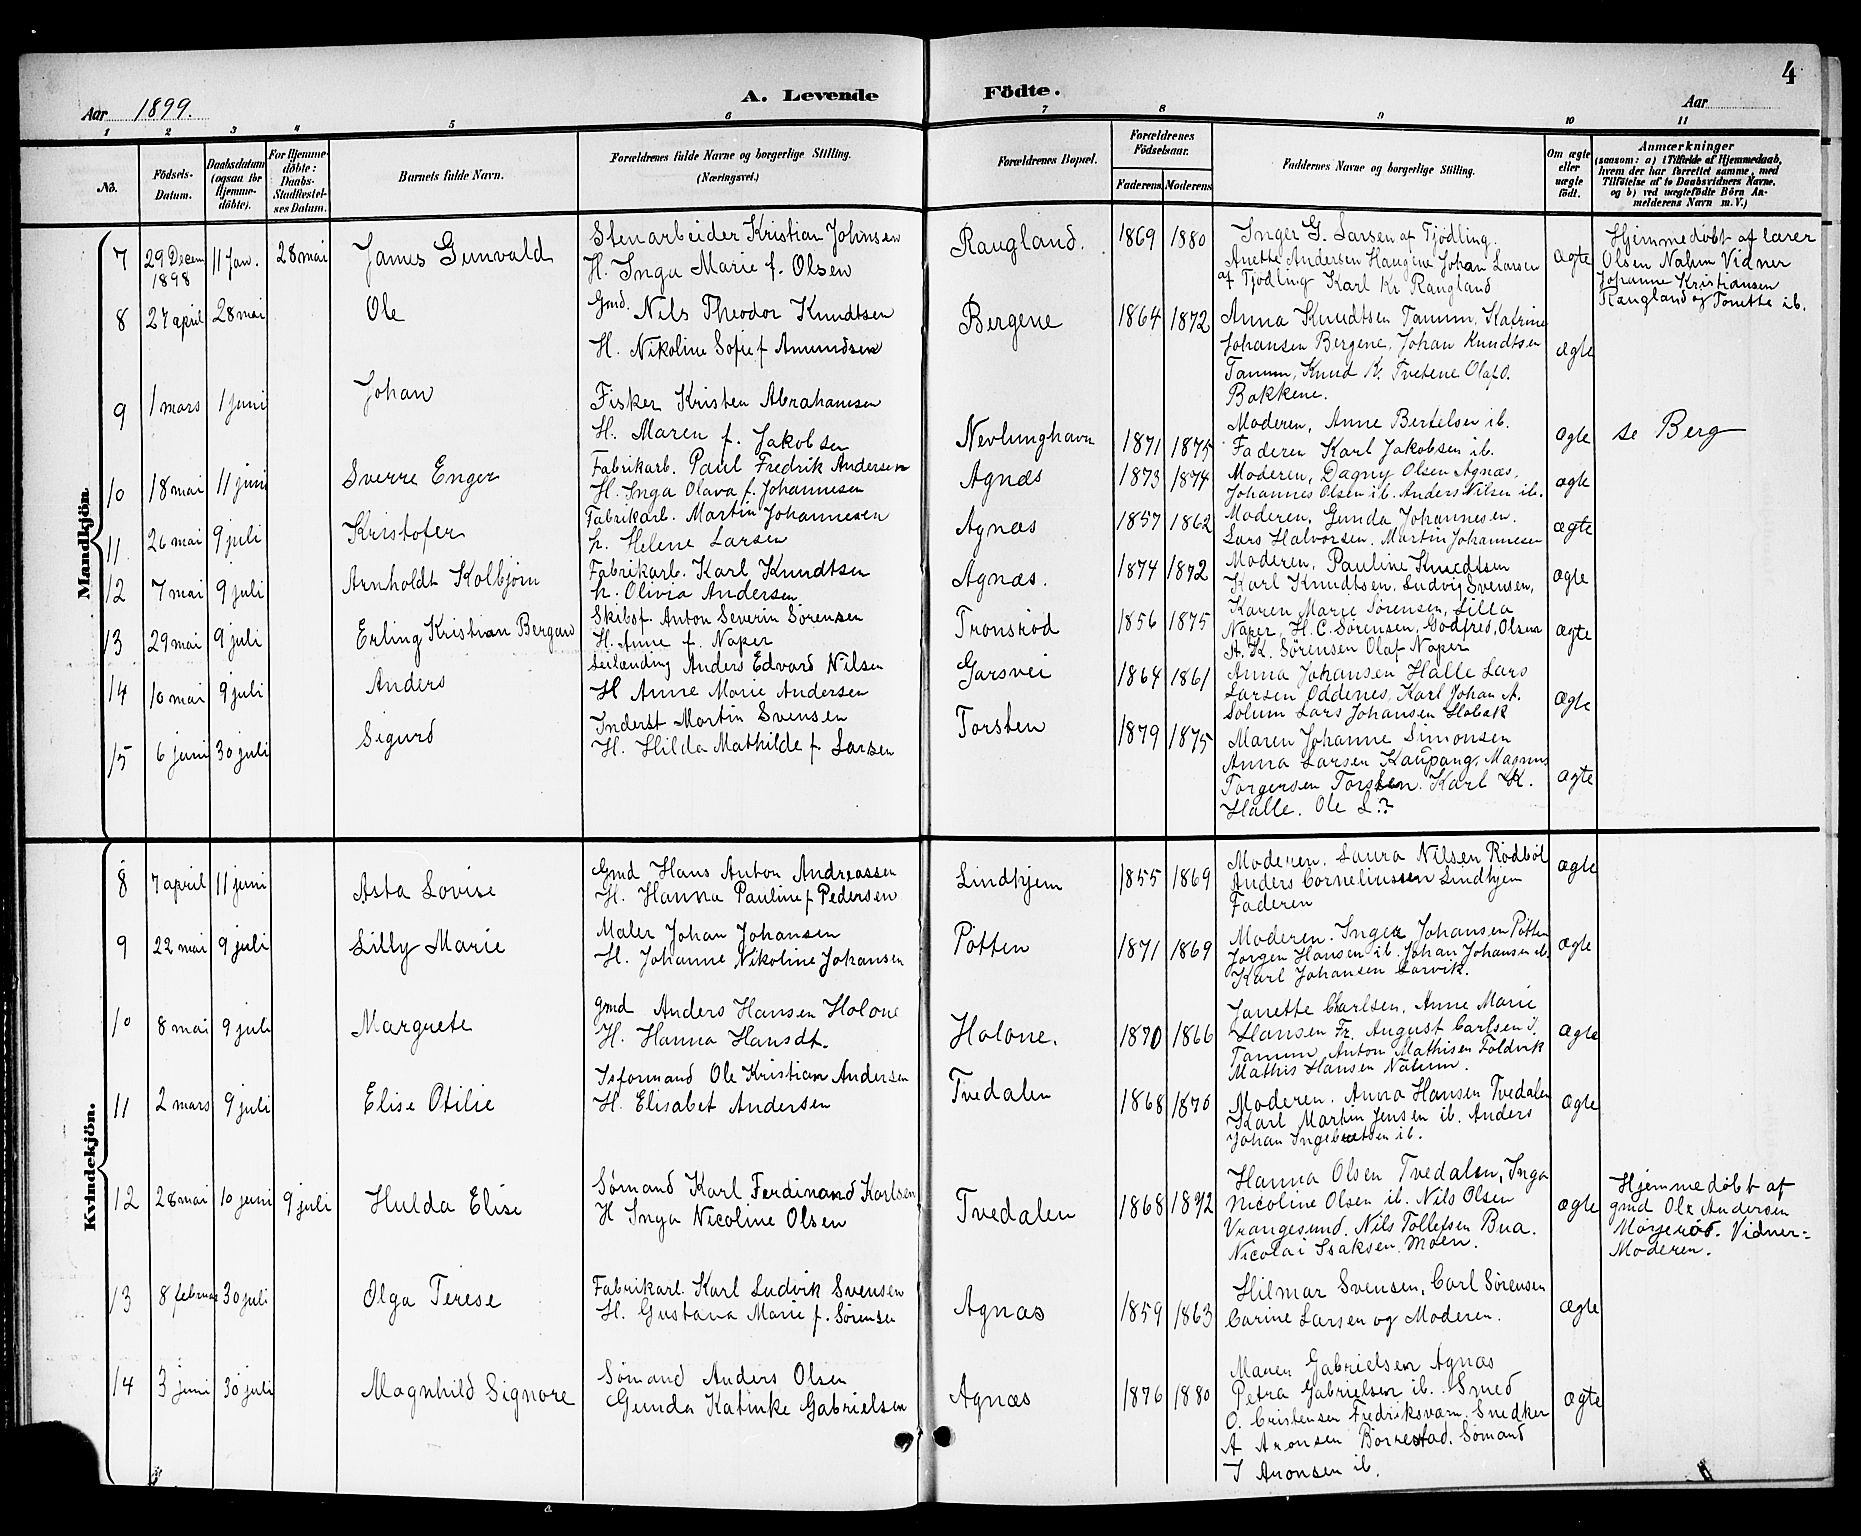 4
Aar 1899.
A. Levende Födte.
Aar
1 2 3 4 5 6 7 8 9 10 11
No.
Födsels-Datum.
Daabsdatum (ogsaa for Hjemme-döbte).
For Hjemme-döbte: Daabs-Stadfæstel-ses Datum.
Barnets fulde Navn.
Forældrenes fulde Navne og borgerlige Stilling.
(Næringsvei.)
Forældrenes Bopæl.
Forældrenes Födselsaar.
Faderens Moderens
Faddernes Navne og borgerlige Stilling.
Om ægte eller uægte födt.
Anmærkninger
(saasom: a) i Tilfælde af Hjemmedaab, hvem der har forrettet samme, med Tilföielse af to Daabsvidners Navne, og b) ved uægtefödte Börn An-melderens Navn m. V.)
Mandkjön.
7 29 Decem 1898 11 Jan. 28 mai James Gunvald
Stenarbeider Kristian Johnsen
H. Inga Marie f. Olsen
Raugland. 1869 1880
Inger G. Larsen af Tjödling.
Anette Andersen Haugene Johan Larsen
af Tjödling Karl Kr Raugland
ægte
Hjemmedøbt af lærer
Olsen Nalum Vidner
Johanne Kristiansen
Raugland og Tonette ib.
8 27 april 28 mai Ole
Gmd. Nils Theodor Knudtsen
H. Nikoline Sofie f Amundsen
Bergene 1864 1872
Anna Knudtsen Tanum, Katrine
Johansen Bergene, Johan Knudtsen
Tanum, Knud K. Tvetene Olaf O.
Bakkene.
ægte
9 1 mars 1 juni Johan
Fisker Kristen Abrahamsen
H. Maren f. Jakobsen
Nevlunghavn 1871 1875
Moderen, Anne Bertelsen ib.
Faderen Karl Jakobsen ib.
ægte
se Berg
10 18 mai 11 juni Sverre Enger
Fabrikarb. Paul Fredrik Andersen
H. Inga Olava f. Johannesen
Agnæs 1873 1874
Moderen, Dagny Olsen Agnæs,
Johannes Olsen ib. Anders Nilsen ib.
ægte
11 26 mai 9 juli Kristofer
Fabrikarb. Martin Johannesen
h. Helene Larsen
Agnæs 1857 1862
Moderen, Gunda Johannesen.
Lars Halvorsen. Martin Johannesen
ægte
12 7 mai 9 juli Arnholdt Kolbjörn
Fabrikarb. Karl Knudtsen
h. Olivia Andersen
Agnæs. 1874 1872
Moderen, Pauline Knudtsen
Karl Knudtsen, Ludvig Svensen,
ægte
13 29 mai 9 juli Erling Kristian Bergau
Skibsf. Anton Severin Sörensen
H. Anne f. Naper
Tronsröd 1856 1875
Karen Marie Sørensen, Lilla
Naper, H. C. Sørensen, Godfred, Olsen
A. K. Sørensen Olaf Naper
ægte
14 10 mai 9 juli Anders
Anders Edvard Nilsen
H Anne Marie Andersen
Garsvei 1864 1861
Anna Johansen Halle Lars
Larsen Oddenes, Karl Johan A.
Solum Lars Johansen Hobæk
ægte
15 6 juni 30 juli Sigurd
Inderst Martin Svensen
H. Hilda Mathilde f. Larsen
Torsten 1879 1875
Maren Johanne Simonsen
Anna Larsen Kaupang, Magnus
Torgersen Torsten. Karl K.
Halle. Ole L?
ægte
Kvindekjön.
8 7 april 11 juni Asta Lovise
Gmd Hans Anton Andreassen
H. Hanna Pauline f Pedersen
Lindhjem 1855 1869
Moderen. Laura Nilsen Rödböl
Anders Corneliussen Lindhjem
Faderen
ægte
9 22 mai 9 juli Lilly Marie
Maler Johan Johansen
H. Johanne Nikoline Johansen
Pötten 1871 1869
Moderen. Inger Johansen Pötten
Jørgen Hansen ib. Johan Johansen ib.
Karl Johansen Larvik.
ægte
10 8 mai 9 juli Margrete
gmd Anders Hansen Holone
H. Hanna Hansdt.
Holone. 1870 1866
Janette Carlsen, Anne Marie
Hansen Fr. August Carlsen i.
Tanum, Anton Mathisen Foldvik
Mathis Hansen Nalum.
ægte
11 2 mars 9 juli Elise Otilie
Isformand Ole Kristian Andersen
H. Elisabet Andersen
Tvedalen 1868 1870
Moderen. Anna Hansen Tvedalen
Karl Martin Jensen ib. Anders
Johan Ingebretsen ib.
ægte
12 28 mai 10 juni 9 juli Hulda Elise
Sømand Karl Ferdinand Karlsen
H Inga Nicoline Olsen
Tvedalen 1868 1892
Hanna Olsen Tvedalen, Inga
Nicoline Olsen ib. Nils Olsen
Vrangesund. Nils Tollefsen Bua.
Nicolai Isaksen. Moen.
ægte
Hjemmedøbt af
gmd Ole Andersen
Mørjeröd. Vidner=
Moderen.
13 8 februar 30 juli Olga Terese
Fabrikarl. Karl Ludvik Svensen
H. Gustava Marie f. Sørensen
Agnæs 1859 1863
Hilmar Svensen, Carl Sørensen
Carine Larsen og Moderen.
ægte
14 3 juni 30 juli Magnhild Signore
Sømand Anders Olsen
Gunda Katinke Gabrielsen
Agnæs 1876 1880
Maren Gabrielsen Agnæs
Petra Gabrielsen ib. Smed
O. Cristensen Fredriksværn. Snedker
A Aronsen Borrestad. Sømand
I Aronsen ib.
ægte